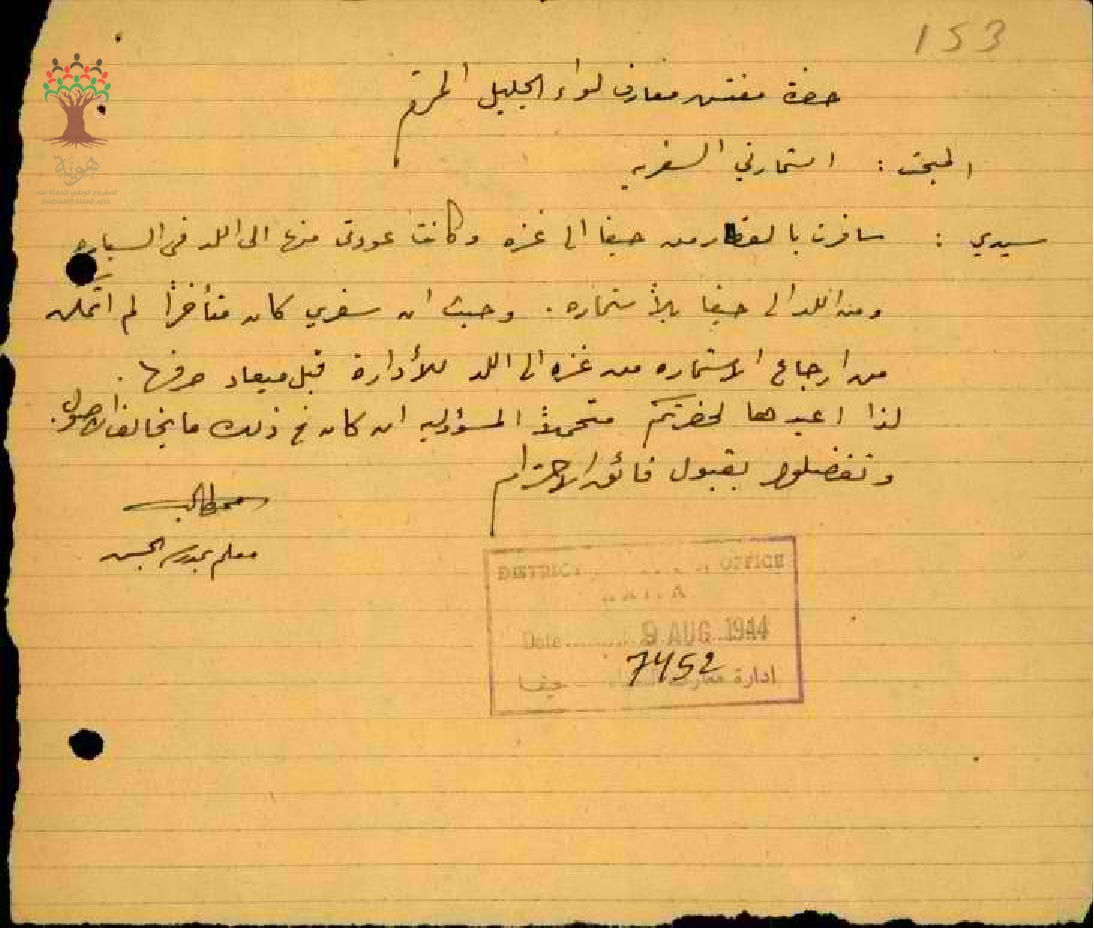 153
حضرة مفتش معارف لواء الجليل المحترم
المبحث : استمارتي السفرية
سيدي : سافرت بالقطار من حيفا الى غزه وكانت عودتي منها الى اللد في السياره
ومن اللد الى حيفا بالاستماره . وحيث ان سفري كان متأخراً لم اتمكن
من ارجاع الاستماره من غزه الى اللد للأدارة قبل ميعاد صرفها .
لذا اعيدها لحضرتكم متحملاً المسؤولية ان كان في ذلك ما يخالف الاصول .
وتفضلوا بقبول فائق الاحترام
معلم بمدرسة
DISTRICT OFFICE
Date 9 AUG 1944
7452
ادارة معارف - حيفا
هوية